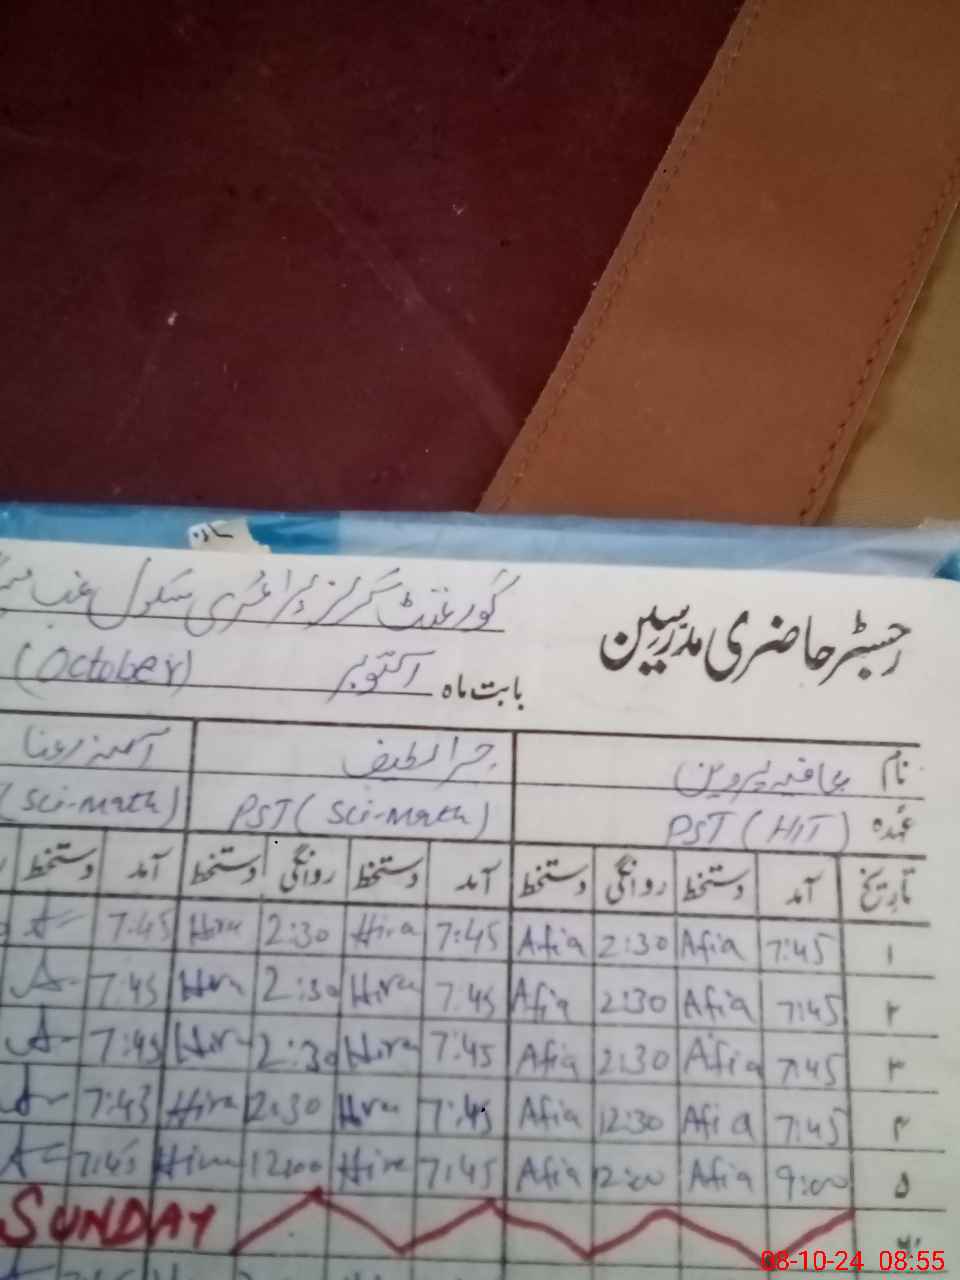 گورنمنٹ گرلز پرائمری سکول
رجسٹر حاضری مدرسین
بابت ماہ اکتوبر (October)
نام عافیہ پروین حرا لطیف
عہدہ PST (HIT) PST (Sci-math) (Sci-math)
تاریخ آمد دستخط روانگی دستخط آمد دستخط روانگی دستخط آمد دستخط
۱ 7:45 Afia 2:30 Afia 7:45 Hira 2:30 Hira 7:45 A
۲ 7:45 Afia 2:30 Afia 7:45 Hira 2:30 Hira 7:45 A
۳ 7:45 Afia 2:30 Afia 7:45 Hira 2:30 Hira 7:45 A
۴ 7:45 Afia 12:30 Afia 7:45 Hira 12:30 Hira 7:45 A
۵ 9:00 Afia 12:00 Afia 7:45 Hira 12:00 Hira 7:45 A
SUNDAY
08-10-24 08:55